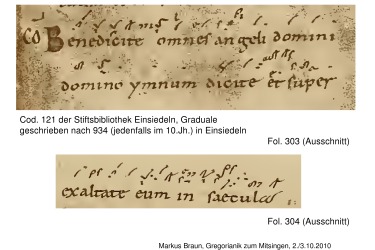 Co Benedicite omnes angeli domini
domino ymnum dicite et super
Cod. 121 der Stiftsbibliothek Einsiedeln, Graduale
geschrieben nach 934 (jedenfalls im 10.Jh.) in Einsiedeln
Fol. 303 (Ausschnitt)
exaltate eum in saecula
Fol. 304 (Ausschnitt)
Markus Braun, Gregorianik zum Mitsingen, 2./3.10.2010